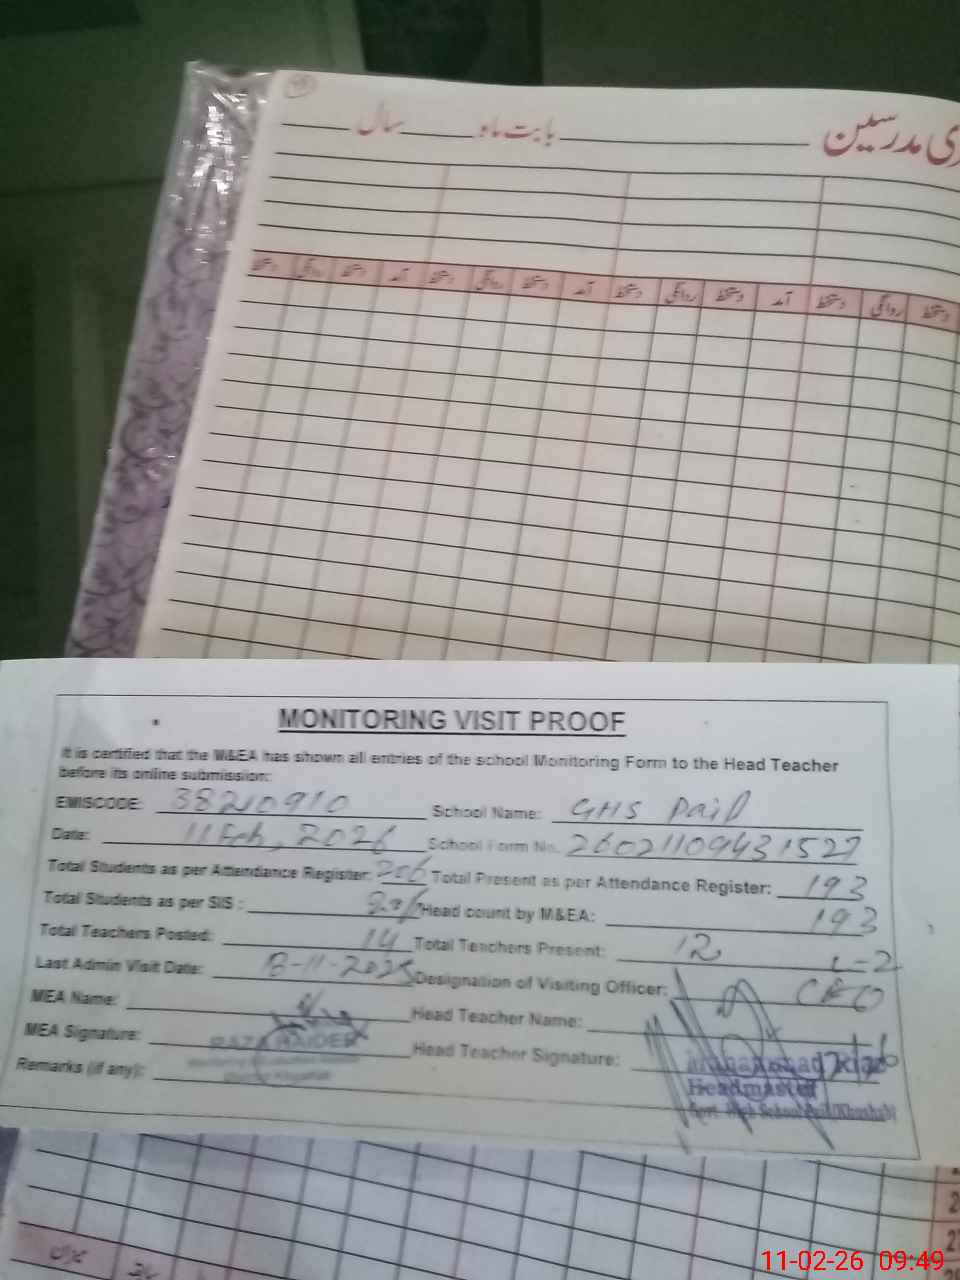 ی مدرسین بابت ماہ سال
دستخط روانگی دستخط آمد دستخط روانگی دستخط آمد دستخط روانگی دستخط آمد دستخط روانگی دستخط
MONITORING VISIT PROOF
It is certified that the M&EA has shown all entries of the school Monitoring Form to the Head Teacher
before its online submission:
EMISCODE: 38210910 School Name: GHS Pail
Date: 11 Feb, 2026 School Form No. 26021109431527
Total Students as per Attendance Register: 206 Total Present as per Attendance Register: 193
Total Students as per SIS : 206 Head count by M&EA: 193
Total Teachers Posted: 14 Total Teachers Present: 12 L-2
Last Admin Visit Date: 8-11-2025 Designation of Visiting Officer: CEO
MEA Name: Head Teacher Name:
MEA Signature: RAZA HAIDER Head Teacher Signature: Muhammad
Remarks (if any): Headmaster
Govt. High School Pail (Khushab)
میزان
11-02-26 09:49